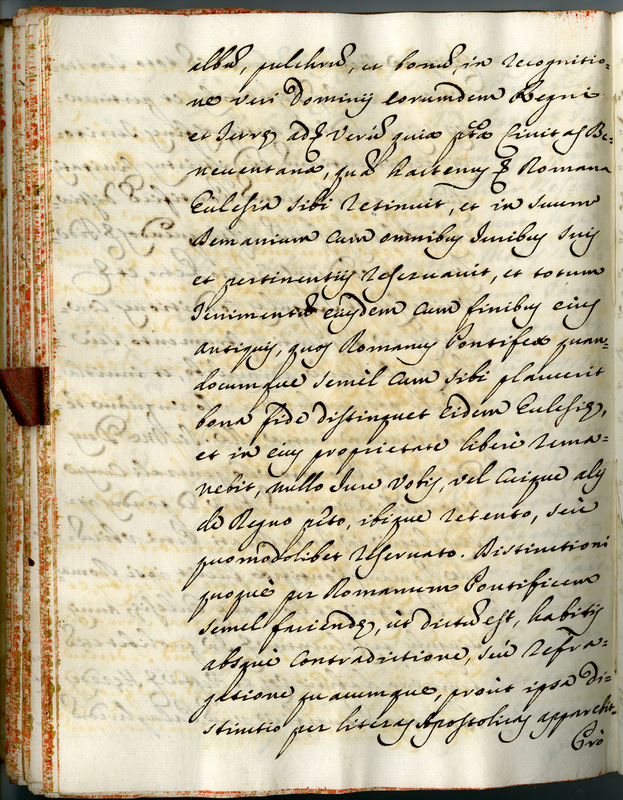 albũ, pulchrũ, et bonũ, in recognitio-
ne veri Dominij eorumdem Regni
et Terrę
neventana, quã hactenus Romana
Ecclesia sibi retinuit, et in suum
Demanium cum omnibus Iuribus suis
et pertinentijs reservavit, et totum
Tenimentũ eiusdem cum finibus eius
antiquis, quos Romanus Pontifex quan-
documque semèl cum sibi placuerit
bona fide distinguet eidem Ecclesię,
et in eius proprietate liberè rema-
nebit, nullo Iure vobis, vel cuique alij
de Regno pᵗᵒ, ibique retento, seù
quomodolibet reservato. Distinctioni
quoquè per Romanum Pontificem
semel faciendę, ùt dictũ est, habitis
absquè contradictione, seù refra-
gatione quacumque, proùt ipsa di-
stinctio per literas Apostolicas apparebit.
Prò